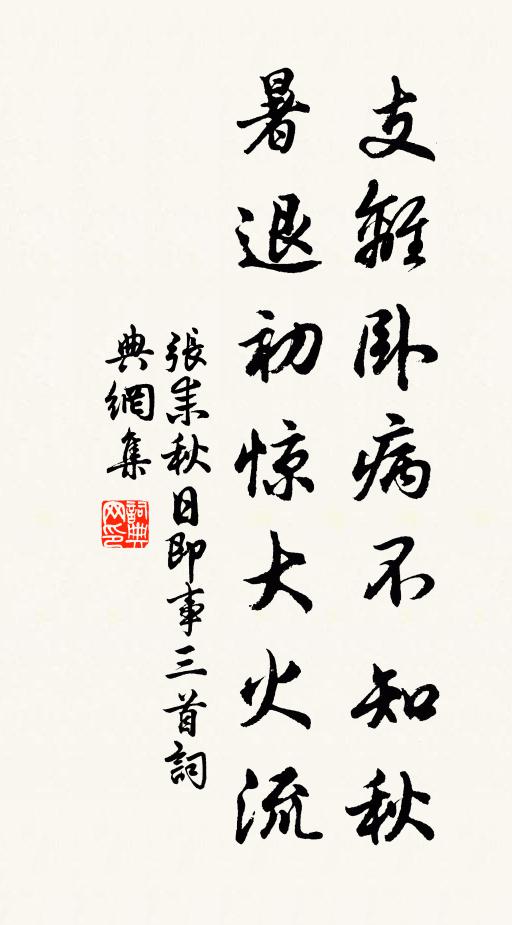 支離卧病不知秋
暑退初惊大火流
張耒秋日即事三首詞
典網集
詞典
网印